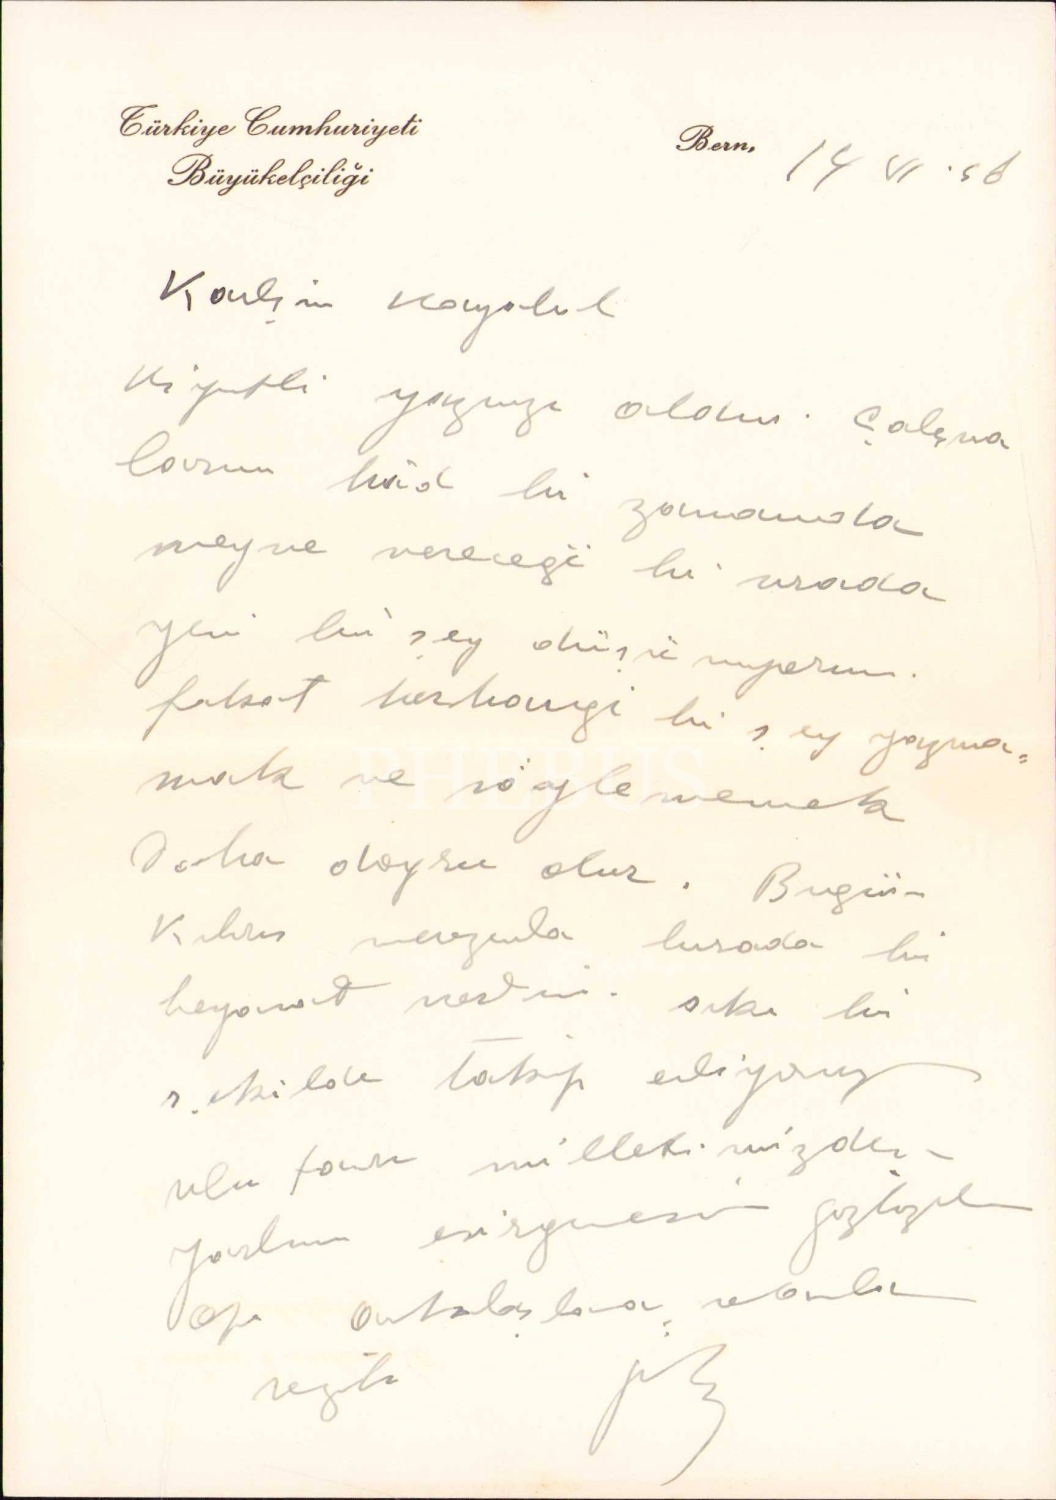 Türkiye Cumhuriyeti
Büyükelçiliği
Bern, 14 VI .56
Kardeşim
Kıymetli yazınızı aldım. Çalışma
larının hâd bir zamanda
meyve vereceği bir sırada
yeni bir şey düşünmüyorum.
fakat herhangi bir şey yazma=
mak ve söylememek
Daha doğru olur. Bugün
Kıbrıs mevzuunda burada bir
beyanat verdim. sıkı bir
şekilde takip ediyoruz
ulu tanrı milletimizden
yardımını esirgemesin gözlerinden
öper arkadaşlara selamlar
PHEBUS